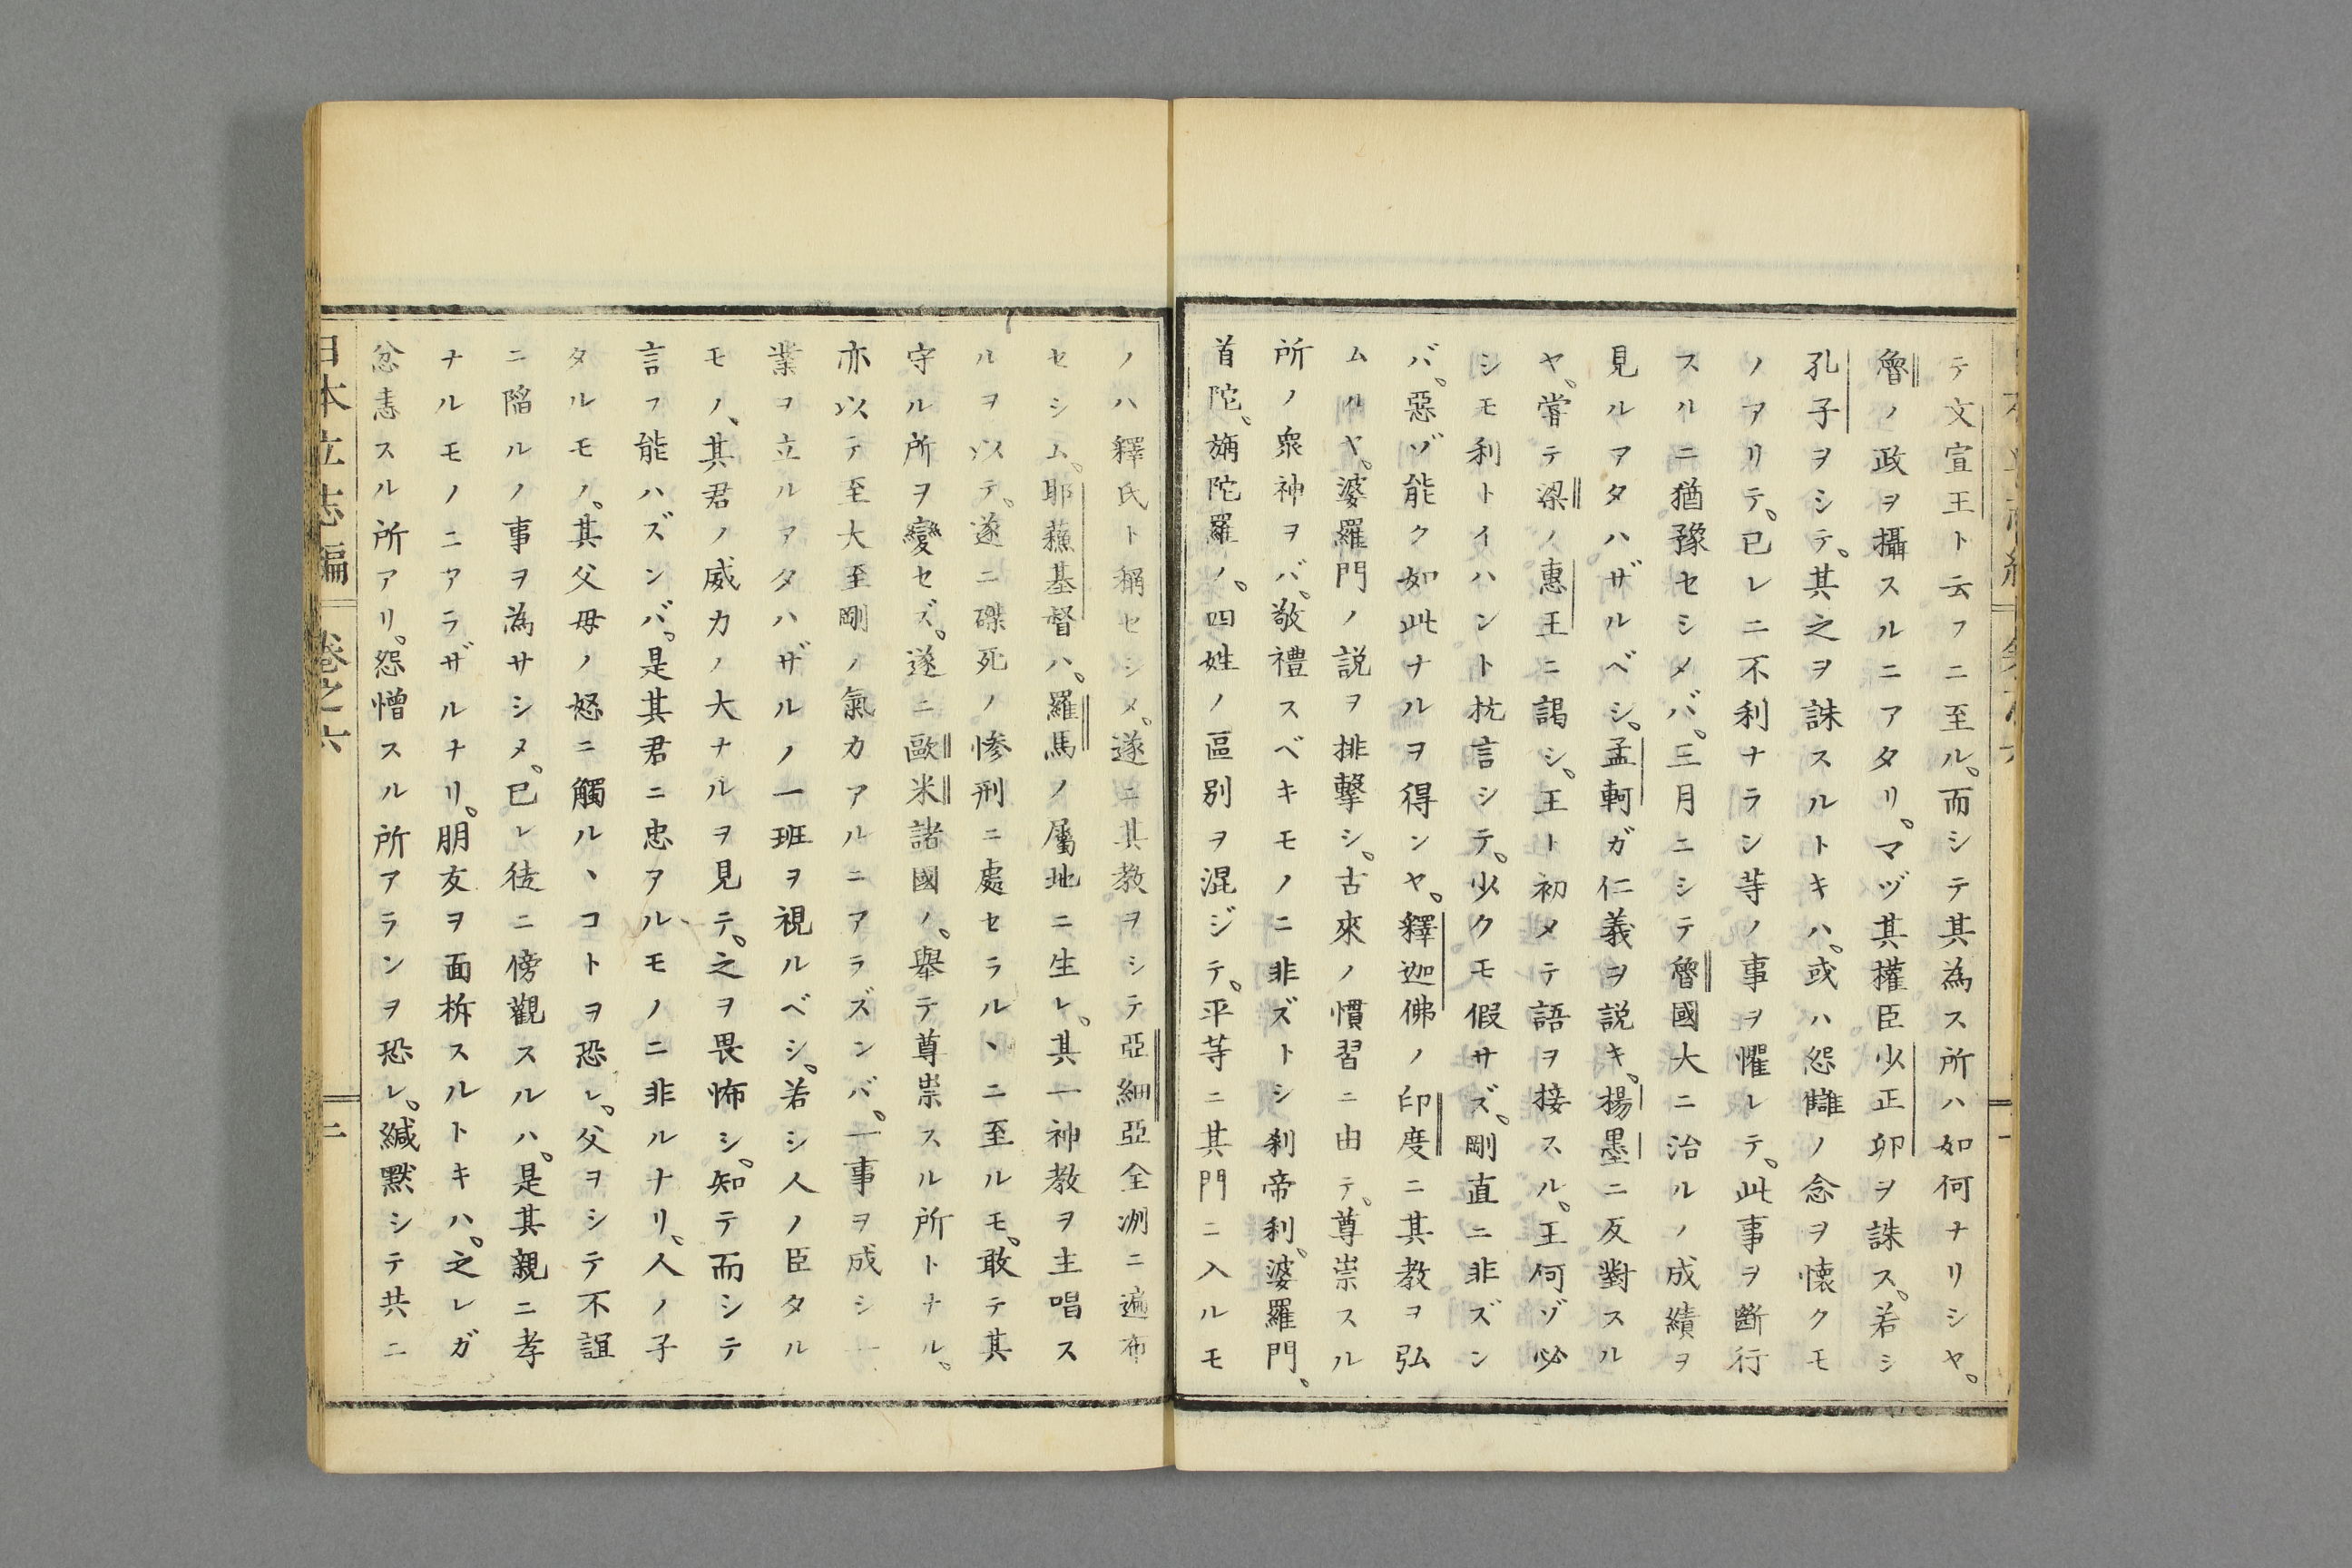 テ文宣王ト云フニ至ル。而シテ其為ス所ハ如何ナリシヤ。
魯ノ政ヲ攝スルニアタリ。マヅ其權臣少正卯ヲ誅ス。若シ
孔子ヲシテ。其之ヲ誅スルトキハ。或ハ怨讎ノ念ヲ懐クモ
ノアリテ。已レニ不利ナラシ等ノ事ヲ懼レテ。此事ヲ斷行
スルニ猶豫セシメバ。三月ニシテ魯國大ニ治ルノ成績ヲ
見ルヿアタハザルベシ。孟軻ガ仁義ヲ説キ。楊墨ニ反對スル
ヤ。嘗テ梁ノ惠王ニ謁シ。王ト初メテ語ヲ接スル。王何ゾ必
シモ利トイハント抗言シテ。少クモ假サズ。剛直ニ非ズン
バ。惡ゾ能ク如此ナルヲ得ンヤ。釋迦佛ノ印度ニ其教ヲ弘
ムルヤ。婆羅門ノ説ヲ排擊シ。古來ノ慣習ニ由テ。尊崇スル
所ノ衆神ヲバ。敬禮スベキモノニ非ズトシ刹帝利。婆羅門。
首陀。旃陀羅ノ。四姓ノ區別ヲ混ジテ。平等ニ其門ニ入ルモ
ノハ釋氏ト稱セシメ。遂ニ其教ヲシテ亞細亞全洲ニ遍布
セシム。耶蘇基督ハ。羅馬ノ屬地ニ生レ。其一神教ヲ主唱ス
ルヲ以テ。遂ニ磔死ノ慘刑ニ處セラルヽニ至ルモ。敢テ其
守ル所ヲ變セズ。遂ニ歐米諸國ノ。舉テ尊崇スル所トナル。
亦以テ至大至剛ノ氣力アルニアラズンバ。一事ヲ成シ一
業ヲ立ルヿタハザルノ一班ヲ視ルベシ。若シ人ノ臣タル
モノ、其君ノ威力ノ大ナルヲ見テ。之ヲ畏怖シ。知テ而シテ
言フ能ハズンバ。是其君ニ忠ヿルモノニ非ルナリ。人ノ子
タルモノ。其父母ノ怒ニ觸ルヽコトヲ恐レ。父ヲシテ不誼
ニ陷ルノ事ヲ為サシメ。已レ徒ニ傍觀スルハ。是其親ニ孝
ナルモノニアラザルナリ。朋友ヲ面柝スルトキハ。之レガ
忿恚スル所アリ。怨憎スル所アランヲ恐レ。緘默シテ共ニ
日本立志編 卷之六 二